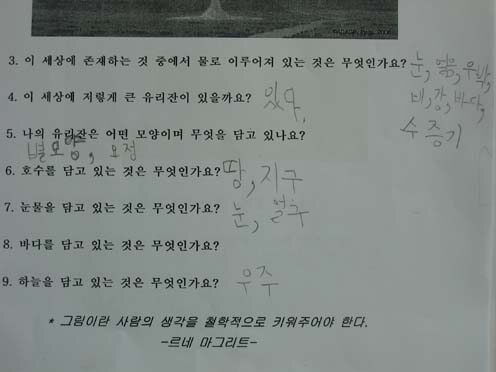 3. 이 세상에 존재하는 것 중에서 물로 이루어져 있는 것은 무엇인가요? 눈, 얼음, 우박,
비, 강, 바다,
수증기
4. 이 세상에 저렇게 큰 유리잔이 있을까요? 있다.
5. 나의 유리잔은 어떤 모양이며 무엇을 담고 있나요?
별모양, 요정
6. 호수를 담고 있는 것은 무엇인가요? 땅, 지구
7. 눈물을 담고 있는 것은 무엇인가요? 눈, 얼굴
8. 바다를 담고 있는 것은 무엇인가요?
9. 하늘을 담고 있는 것은 무엇인가요? 우주
* 그림이란 사람의 생각을 철학적으로 키워주어야 한다.
-르네 마그리트-